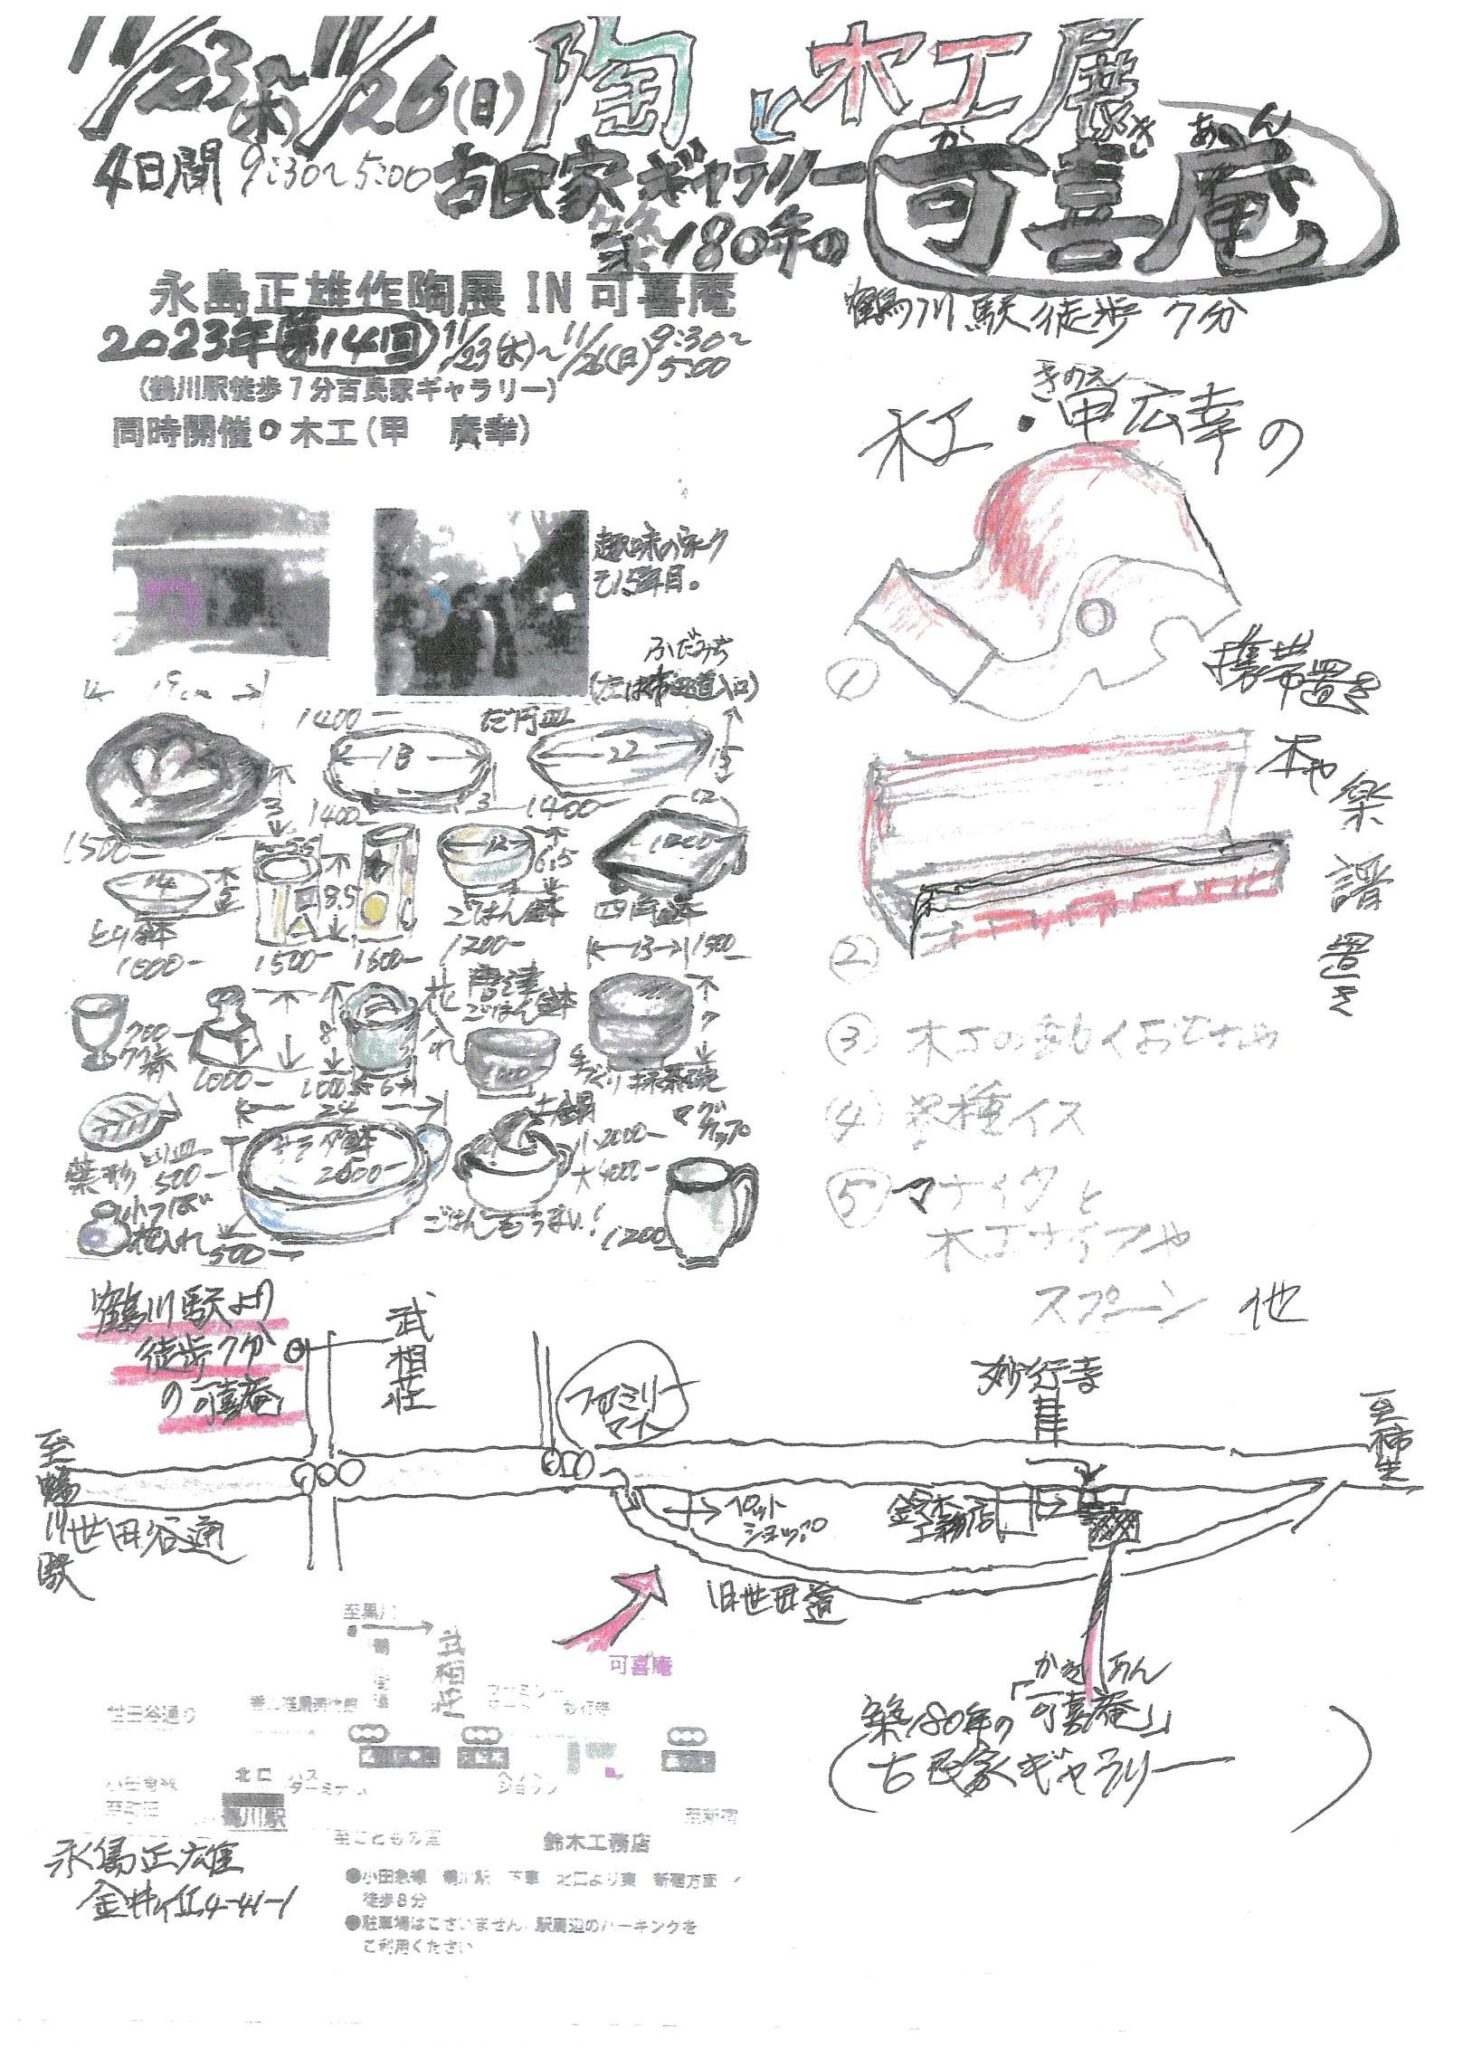 11/23(木)~11/26(日) 陶と木工展
4日間 9:30~5:00 古民家ギャラリー
かきあん
築180年の 可喜庵
鶴川駅徒歩7分
永島正雄作陶展 IN 可喜庵
2023年 第14回 11/23(木)~11/26(日) 9:30~5:00
(鶴川駅徒歩7分古民家ギャラリー)
同時開催○木工(甲 廣幸)
きのえ
木工・甲広幸の
① 携帯置き
② 本や楽譜置き
③ 木工の
④ 各種イス
⑤ マナイタと
木工ナイフや
スプーン 他
趣味の
15年目。
ふだみち
入口)
19cm
1500-
3
1400-
だ円皿
18
3
1400-
22
15
1400-
14
とり鉢
1000-
8.5
1500-
1600-
12
6.5
ごはん鉢
1200-
12
1200-
四角鉢
13
1500-
700-
1000-
8
1000-
6
花入れ
唐津
ごはん鉢
手づくり
抹茶碗
7
葉形とり皿
500-
小つぼ
花入れ
500-
24
サラダ鉢
2000-
土鍋
小2000-
大4000-
ごはんもうまい!
マグカップ
1200-
鶴川駅より
徒歩7分
の可喜庵
武相荘
ファミリーマート
妙行寺
至柿生
至鶴川駅
世田谷通
ペットショップ
鈴木工務店
旧世田谷道
かきあん
築180年の「可喜庵」
(古民家ギャラリー)
至黒川
武相荘
可喜庵
世田谷通り
北口 バスターミナル
鶴川駅
至こどもの国
至新宿
鈴木工務店
永島正雄
金井ヶ丘4-41-1
●小田急線 鶴川駅 下車 北口より東 新宿方面へ
徒歩8分
●駐車場はございません。駅周辺のパーキングを
ご利用ください